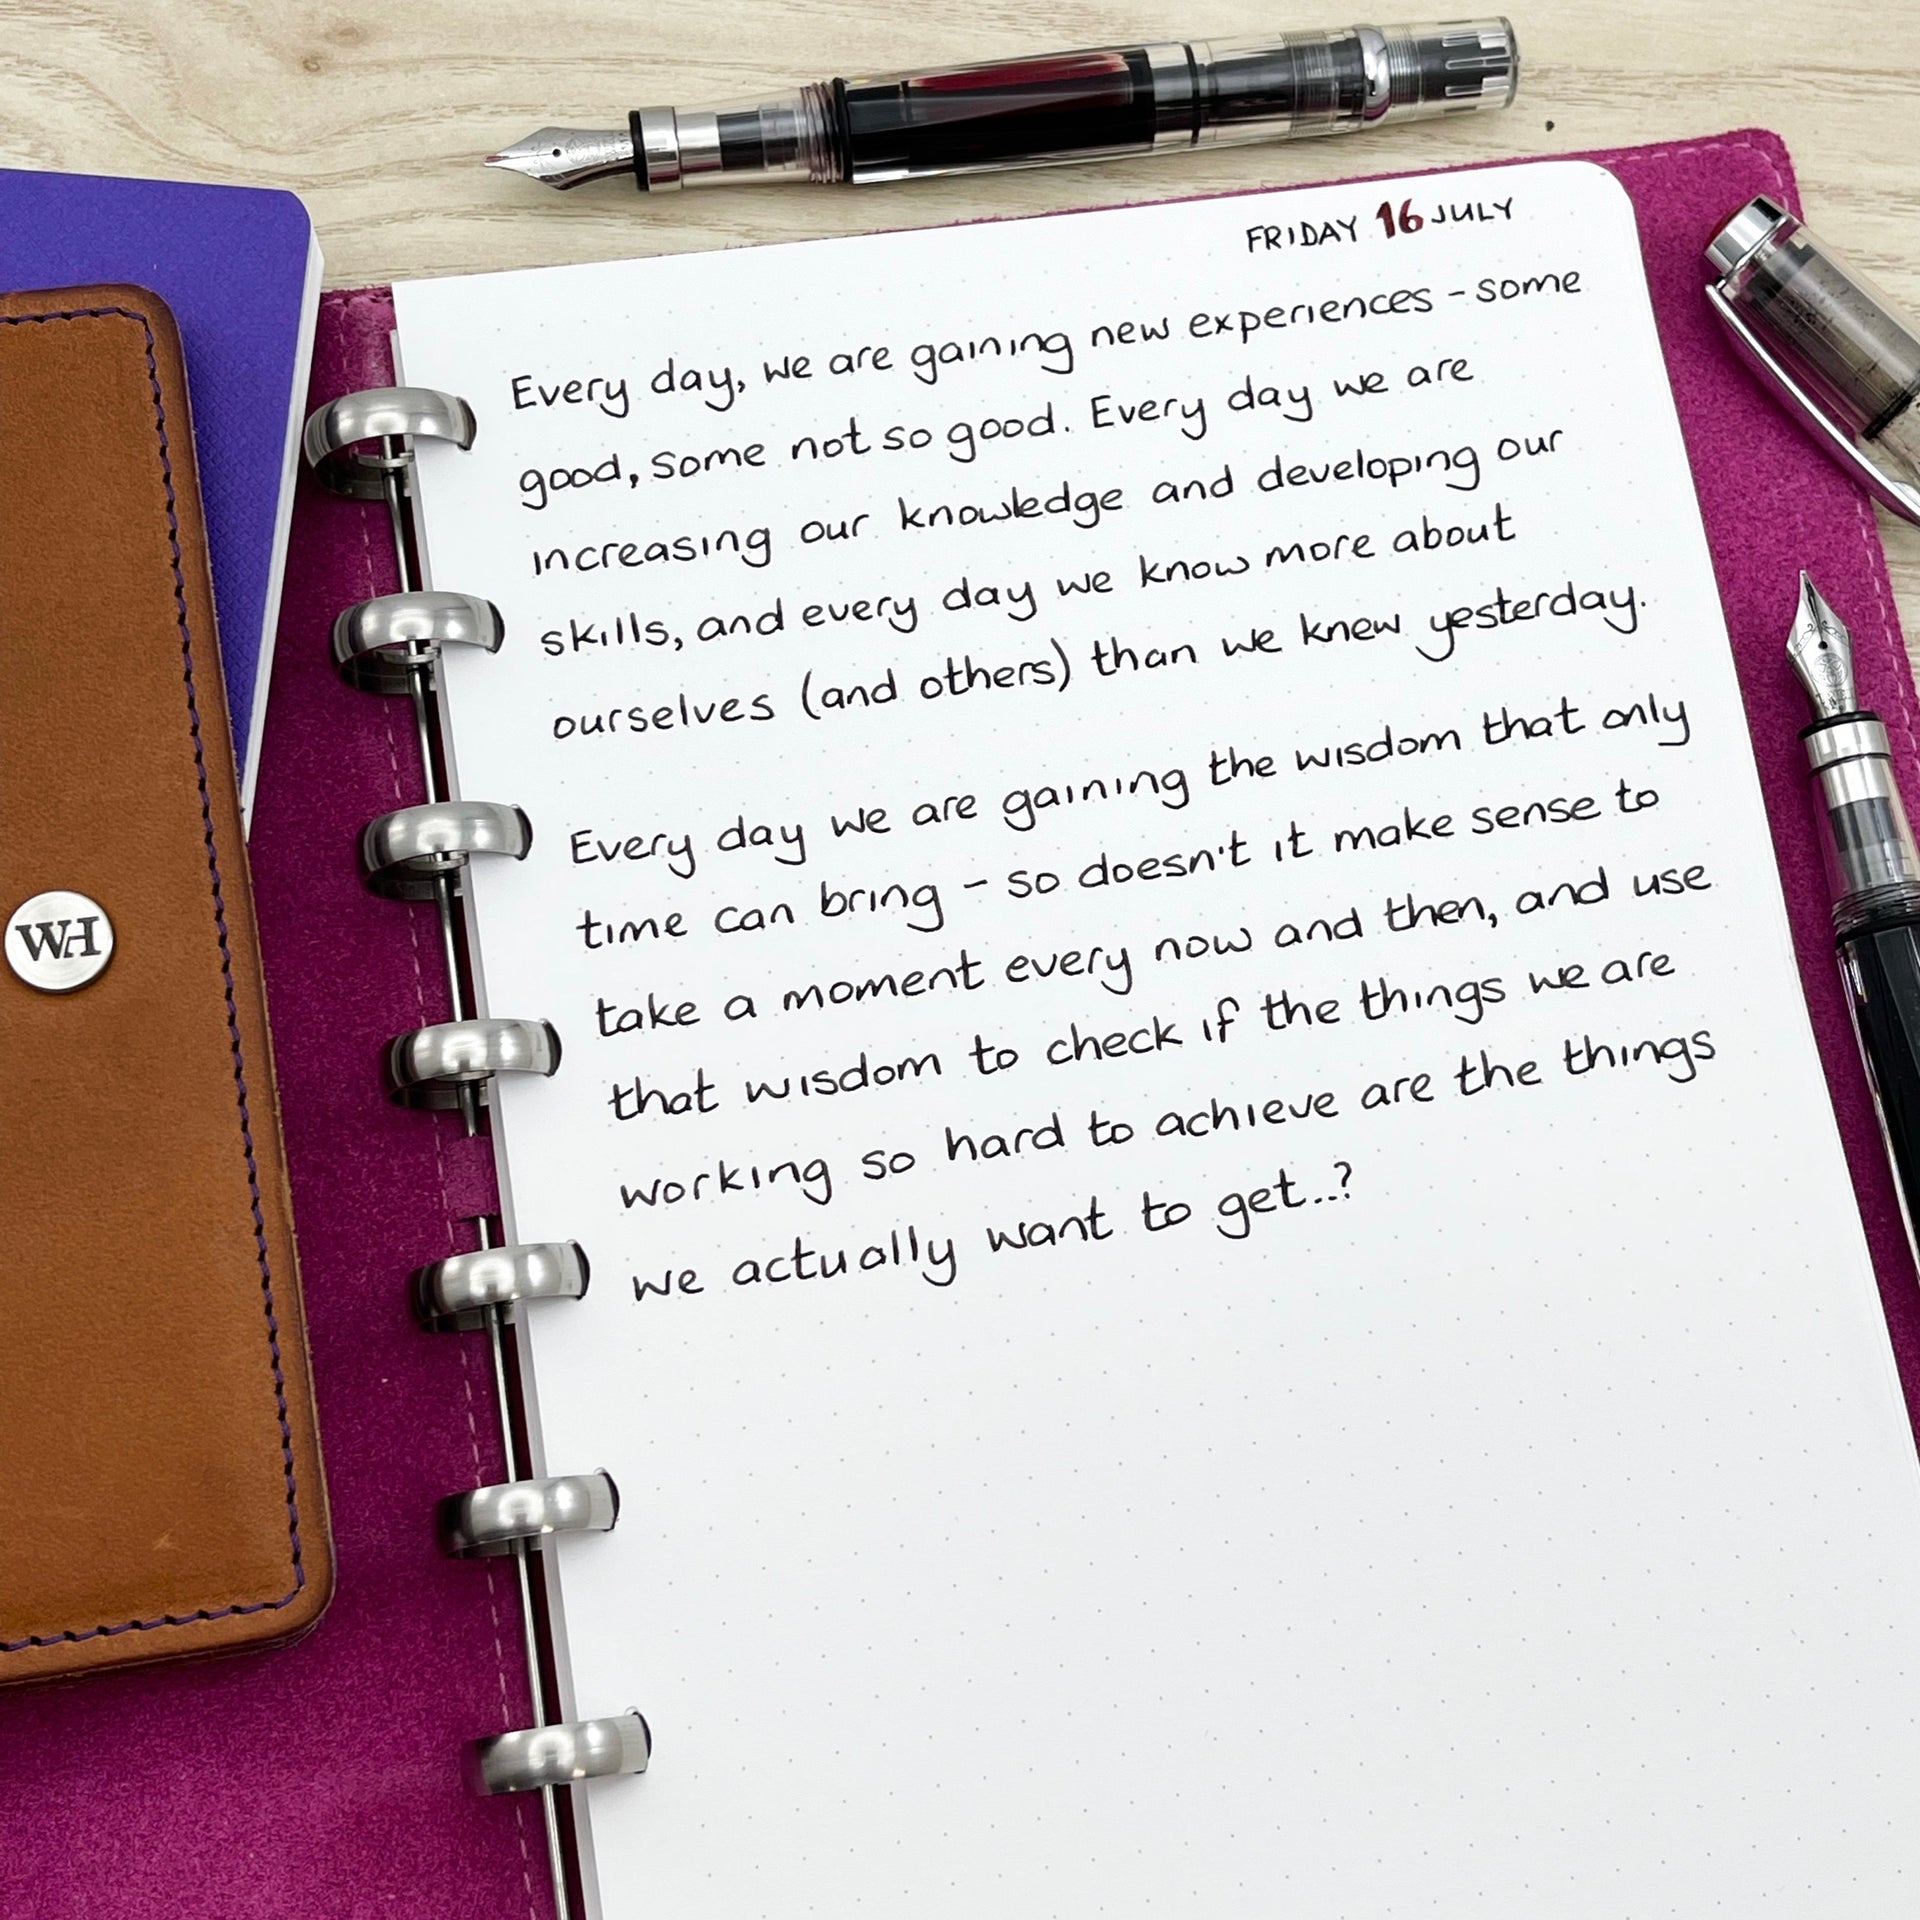 FRIDAY 16 JULY
Every day, we are gaining new experiences - some
good, some not so good. Every day we are
increasing our knowledge and developing our
skills, and every day we know more about
ourselves (and others) than we knew yesterday.
Every day we are gaining the wisdom that only
time can bring - so doesn't it make sense to
take a moment every now and then, and use
that wisdom to check if the things we are
working so hard to achieve are the things
we actually want to get..?
WH